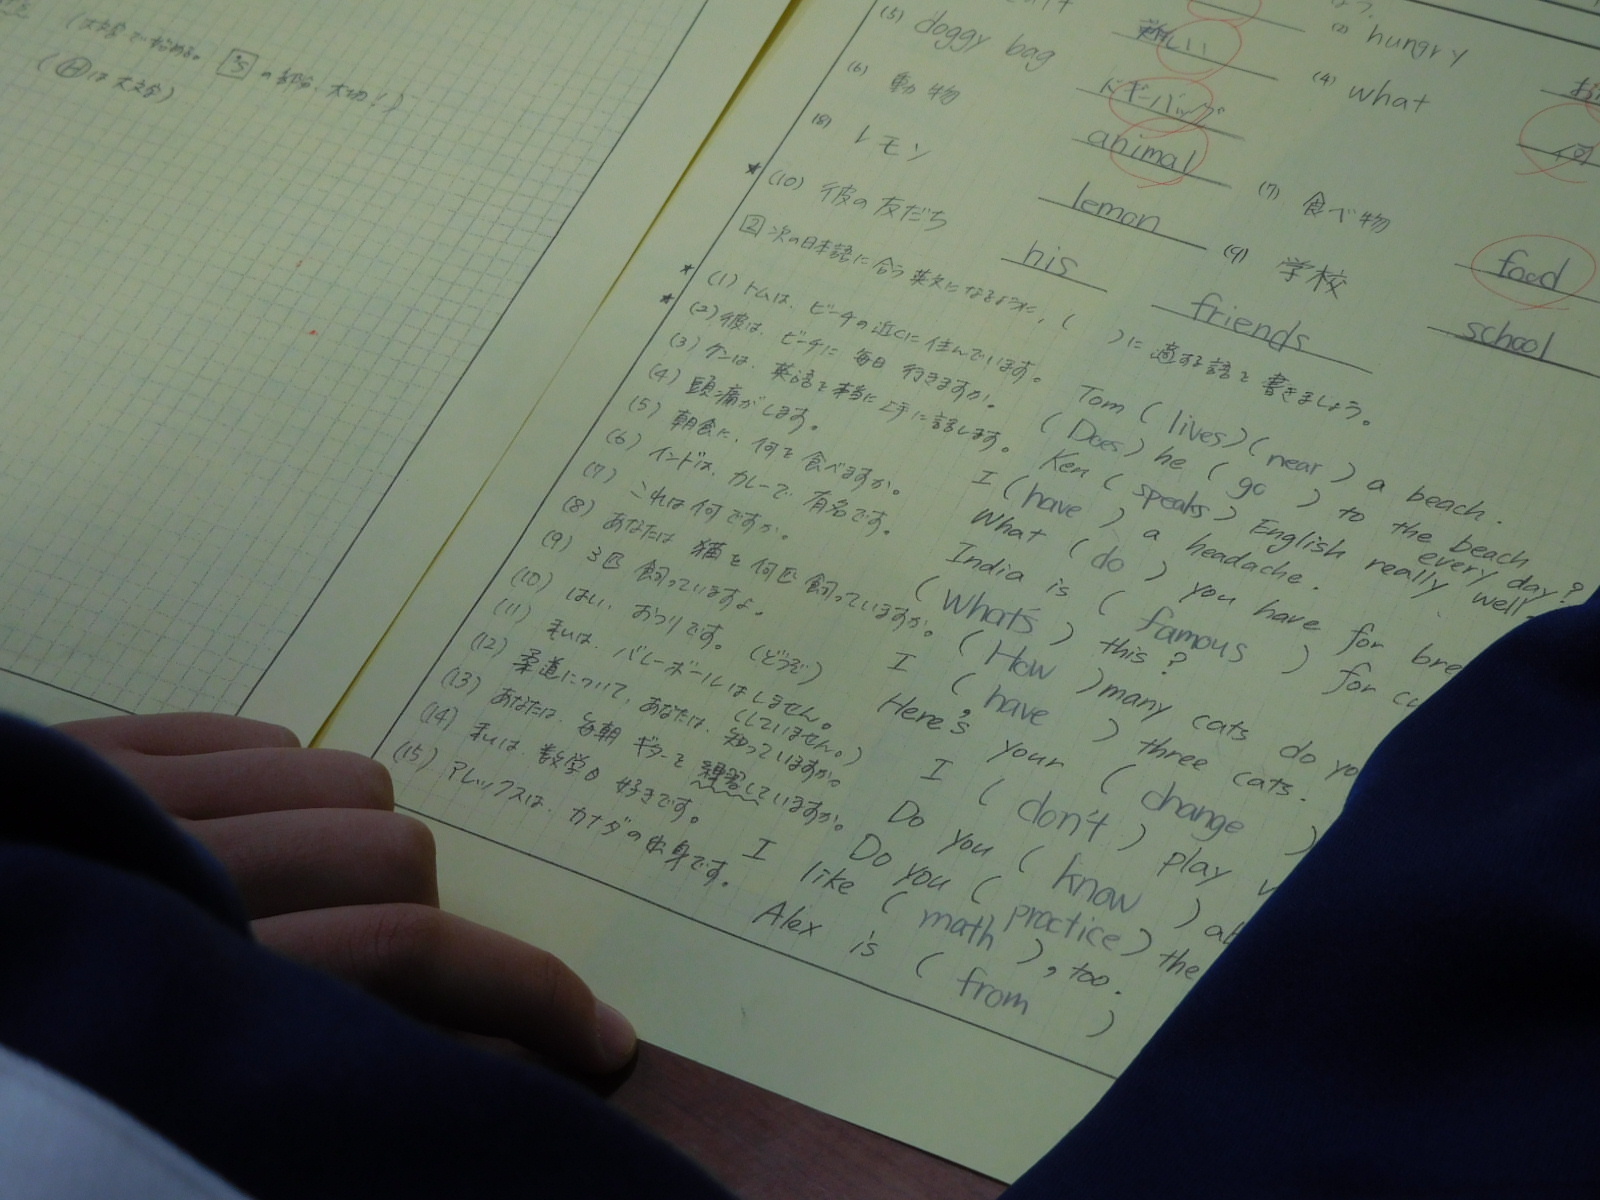 (は大文字で始める。 's の部分、大切!)
(Ⓗは大文字)
新しい (3) hungry
(5) doggy bag ドギーバッグ (4) what 何
(6) 動物 animal (7) 食べ物 food
(8) レモン lemon (9) 学校 school
★(10) 彼の友だち his friends
2 次の日本語に合う英文になるように, ( )に適する語を書きましょう。
★(1) トムは、ビーチの近くに住んでいます。 Tom (lives)(near) a beach.
★(2) 彼は、ビーチに毎日行きますか。 (Does) he (go) to the beach every day?
(3) ケンは、英語を本当に上手に話します。 Ken (speaks) English really well.
(4) 頭痛がします。 I (have) a headache.
(5) 朝食に、何を食べますか。 What (do) you have for bre
(6) インドは、カレーで有名です。 India is (famous) for cu
(7) これは何ですか。 (What's) this?
(8) あなたは猫を何匹飼っていますか。 (How) many cats do yo
(9) 3匹飼っていますよ。 I (have) three cats.
(10) はい、おつりです。(どうぞ) Here's your (change)
(11) 私は、バレーボールはしません。(していません。) I (don't) play v
(12) 柔道について、あなたは、知っていますか。 Do you (know) ab
(13) あなたは、毎朝ギターを練習していますか。 Do you (practice) the
(14) 私は、数学も好きです。 I like (math), too.
(15) アレックスは、カナダの出身です。 Alex is (from )